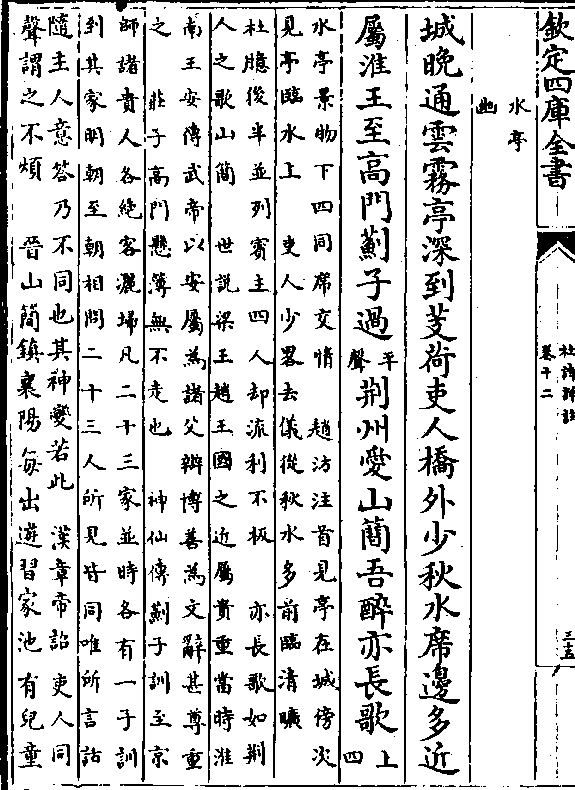 欽定四庫全書
杜詩詳註
卷十二
三五
水亭
幽
城晚通雲霧亭深到芰荷吏人橋外少秋水席邊多近
屬淮王至高門薊子過平聲荆州愛山簡吾醉亦長歌上四
水亭景物下四同席交情　趙汸注首見亭在城傍次
見亭臨水上　吏人少畧去儀從秋水多前臨清曠
杜臆後半並列賓主四人却流利不板　亦長歌如荆
人之歌山簡　世説梁王趙王國之近屬貴重當時淮
南王安傳武帝以安屬為諸父辯博善為文辭甚尊重
之　莊子高門懸簿無不走也　神仙傳薊子訓至京
師諸貴人各絶客灑掃凡二十三家並時各有一子訓
到其家明朝至朝相問二十三人所見皆同唯所言話
隨主人意答乃不同也其神變若此　漢章帝詔吏人同
聲謂之不煩　晉山簡鎮襄陽每出遊習家池有兒童